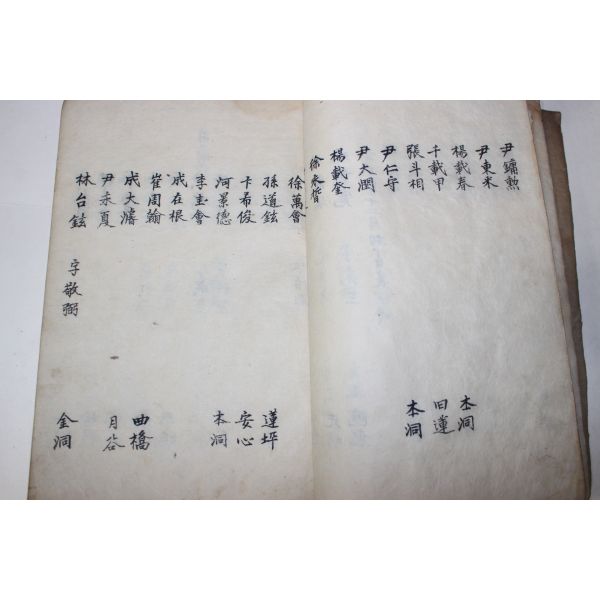 尹鏞勲
尹東米
楊載春 本洞
千載甲 旧蓮
張斗相 本洞
尹仁守
尹大潤
楊載奎
徐永
徐萬會
孫道鉉 蓮坪
卞希俊 安心
河景德 本洞
李圭會
成在根
崔周翰
成大濤 曲橋
尹永夏 月谷
林台鉉 字敬弼 金洞